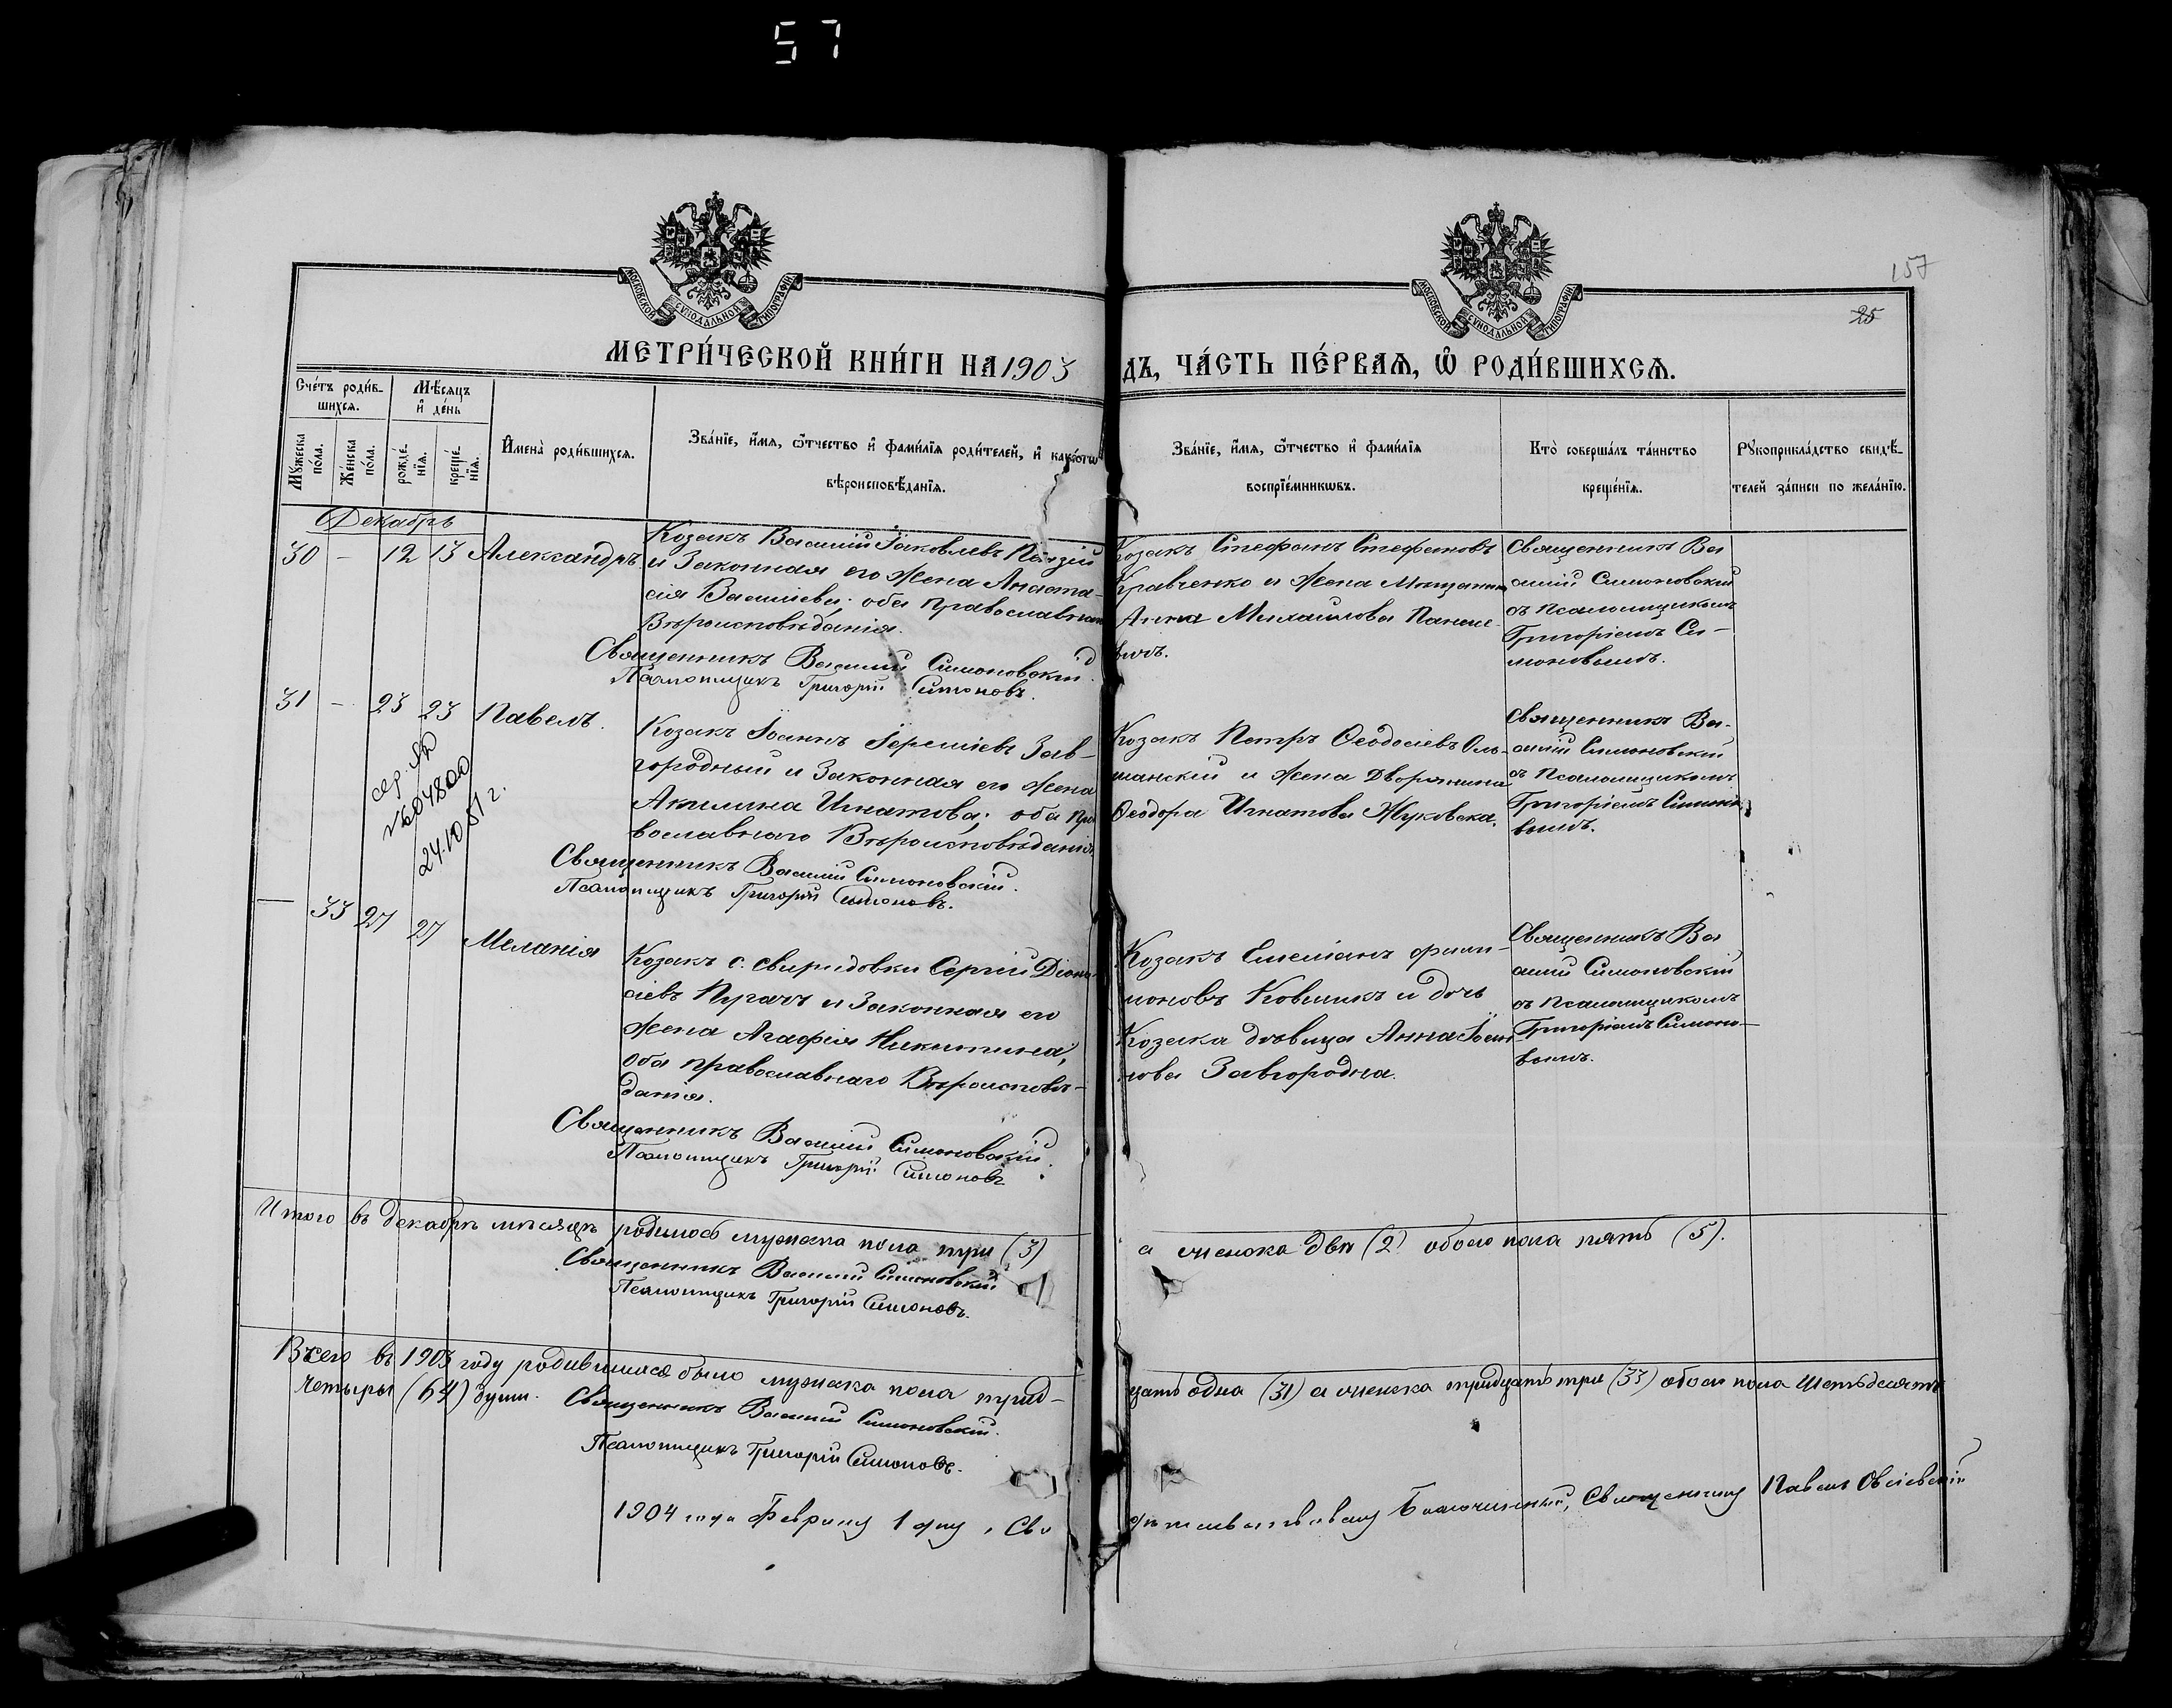 57
157
25
МОСКОВСКОЙ СУНОДАЛЬНОЙ ТИПОГРАФІИ
МОСКОВСКОЙ СУНОДАЛЬНОЙ ТИПОГРАФІИ
МЕТРИ́ЧЕСКОЙ КНИ́ГИ НА 1903
ДЪ, ЧА́СТЬ ПЕ́РВАѦ, Ѡ҆ РОДИ́ВШИХСѦ.
Сче́тъ роди́в-
шихсѧ.
Мѣ́сѧцъ
и҆ де́нь
Мꙋ́жеска
по́ла.
Же́нска
по́ла.
рожде́-
нїѧ.
креще́-
нїѧ.
И҆мена̀ роди́вшихсѧ.
Зва́нїе, и҆́мѧ, ѻ҆́тчество и҆ фами́лїѧ роди́телей, и҆ како́гѡ
вѣроисповѣ́данїѧ.
Зва́нїе, и҆́мѧ, ѻ҆́тчество и҆ фами́лїѧ
воспрїе́мникѡвъ.
Кто̀ соверша́лъ та́инство
креще́нїѧ.
Рꙋкоприкла́дство свидѣ́-
телей за́писи по жела́нїю.
Декабрь
30 - 12 13 Александръ
Козакъ Василій Іаковлевъ
и Законная его жена Анаста-
сія Васильева; оба православнаго
Вѣроисповѣданія.
Священникъ Василій Симоновскій.
Псаломщикъ Григорій Симоновъ.
Козакъ Стефанъ Стефановъ
Кравченко и жена Мѣщанина
Анна Михаилова
Священникъ Ва-
силій Симоновскій
съ Псаломщикомъ
Григоріемъ Си-
моновымъ.
31 - 23 23 Павелъ.
сер. ЯD
№ 604800
24.10.51 г.
Козакъ Іоаннъ Іереміевъ Зав-
городный и Законная его жена
Акилина Игнатова; оба пра-
вославнаго Вѣроисповѣданія.
Священникъ Василій Симоновскій.
Псаломщикъ Григорій Симоновъ.
Козакъ Петръ Ѳеодосіевъ Оль-
шанскій и жена Дворянина
Ѳеодора Игнатова Жуковска.
Священникъ Ва-
силій Симоновскій
съ Псаломщикомъ
Григоріемъ Симоно-
вымъ.
— 33 27 27 Меланія
Козакъ с. Свиридовки Сергій Діони-
сіевъ Пугачъ и Законная его
жена Агафія Никитина,
оба православнаго Вѣроисповѣ-
данія.
Священникъ Василій Симоновскій.
Псаломщикъ Григорій Симоновъ.
Козакъ Емеліанъ Фили-
моновъ Ковшикъ и дочь
Козака дѣвица Анна Іоан-
нова Завгородна.
Священникъ Ва-
силій Симоновскій
съ Псаломщикомъ
Григоріемъ Симоно-
вымъ.
Итого въ декабрѣ мѣсяцѣ родилось мужска пола три (3)
а женска двѣ (2) обоего пола пять (5).
Священникъ Василій Симоновскій
Псаломщикъ Григорій Симоновъ.
Всего въ 1903 году родившихся было мужска пола трид-
цать одна (31) а женска тридцать три (33) обоего пола шестьдесятъ
четыры (64) души.
Священникъ Василій Симоновскій.
Псаломщикъ Григорій Симоновъ.
1904 года Февраля 1 дня, Сви
дѣтельствовалъ Благочинный, Священникъ Павелъ